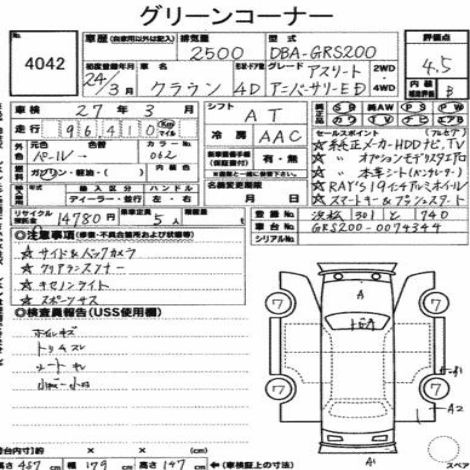 グリーンコーナー
No. 4042
車歴 (自家用以外は記入) 排気量 2500 型式 DBA-GRS200 評価点 4.5
初度登録年月 24/3月 車名 クラウン 形・ドア数 4D グレード アスリート アニバーサリーED 2WD・4WD 内装 B
車検 27年3月 シフト AT
走行 96410 Km マイル 冷房 AAC
純正品 SR 純AW PS PW
外色 元色 パール 色替 → カラーNo. 062
燃料 ガソリン・軽油・( )
輸入車 年式 輸入区分 ディーラー・並行 ハンドル 左・右
新車整備手帳(保証書付) 有・無
名義変更期限 月 日
リサイクル預託金 14780円 乗車定員 5人
セールスポイント
☆純正メーカーHDDナビ,TV
☆ 〃 オプションモデリスタエアロ
☆ 〃 本革シート
☆RAY'S 19インチアルミホイル
☆スマートキー&プッシュスタート
登録No. 浜松 301 と 740
車台No. GRS200-0074344
シリアルNo.
◎注意事項 (修復・不具合箇所および状態等)
☆サイド&バックカメラ
☆クリアランスソナー
☆キセノンライト
☆スポーツサス
◎検査員報告(USS使用欄)
ホイルキズ
トリムスレ
シートキレ
A
7
7
7
7
A2
A1
車台内寸(約) × × (cm)
長さ 487 cm 幅 179 cm 高さ 147 (cm) (車検証上の寸法)